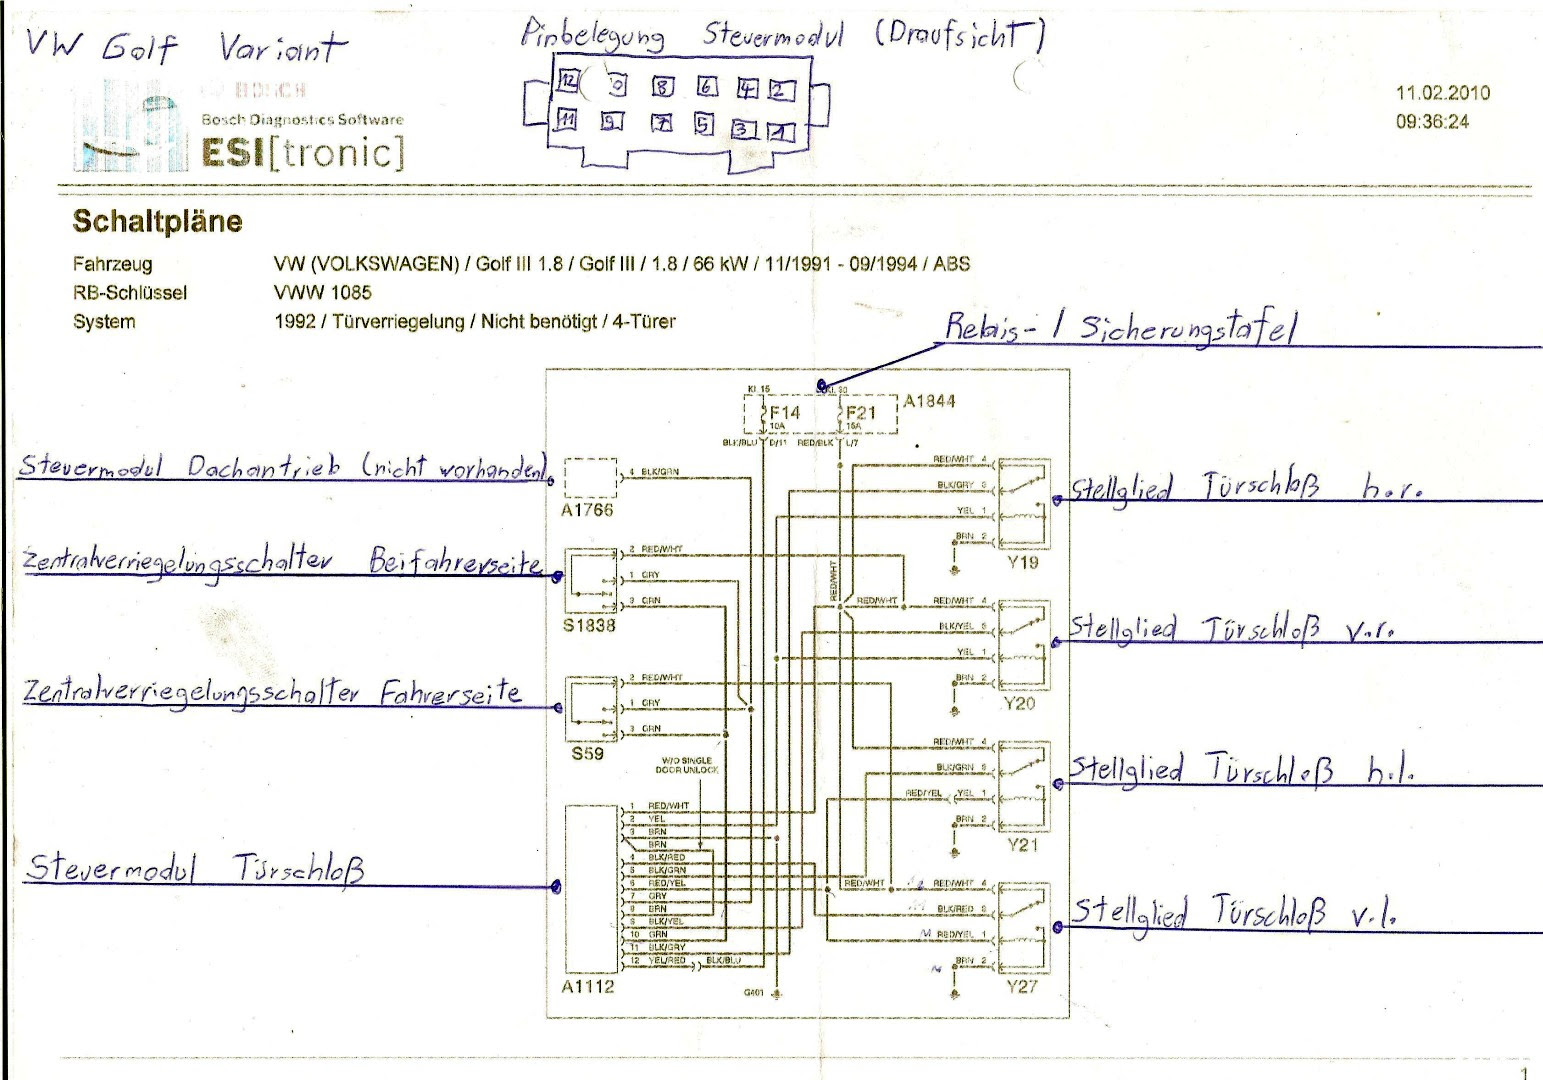 VW Golf Variant
Pinbelegung Steuermodul (Draufsicht)
12 10 8 6 4 2
11 9 7 5 3 1
BOSCH
Bosch Diagnostics Software
ESI[tronic]
11.02.2010
09:36:24
Schaltpläne
Fahrzeug VW (VOLKSWAGEN) / Golf III 1.8 / Golf III / 1.8 / 66 kW / 11/1991 - 09/1994 / ABS
RB-Schlüssel VWW 1085
System 1992 / Türverriegelung / Nicht benötigt / 4-Türer
Relais- / Sicherungstafel
Kl. 15 Kl. 30
F14 10A F21 15A A1844
BLK/BLU D/11 RED/BLK L/7
Steuermodul Dachantrieb (nicht vorhanden)
4 BLK/GRN
A1766
Zentralverriegelungsschalter Beifahrerseite
2 RED/WHT
1 GRY
3 GRN
S1838
Zentralverriegelungsschalter Fahrerseite
2 RED/WHT
1 GRY
3 GRN
S59
W/O SINGLE
DOOR UNLOCK
Steuermodul Türschloß
1 RED/WHT
2 YEL
3 BRN
BRN
4 BLK/RED
5 BLK/GRN
6 RED/YEL
7 GRY
8 BRN
9 BLK/YEL
10 GRN
11 BLK/GRY
12 YEL/RED BLK/BLU
A1112
G401
RED/WHT
RED/WHT
RED/WHT
RED/WHT 4
BLK/GRY 3
YEL 1
BRN 2
Y19
Stellglied Türschloß h.r.
RED/WHT 4
BLK/YEL 3
YEL 1
BRN 2
Y20
Stellglied Türschloß v.r.
RED/WHT 4
BLK/GRN 3
RED/YEL YEL 1
BRN 2
Y21
Stellglied Türschloß h.l.
RED/WHT 4
BLK/RED 3
RED/YEL 1
BRN 2
Y27
Stellglied Türschloß v.l.
1